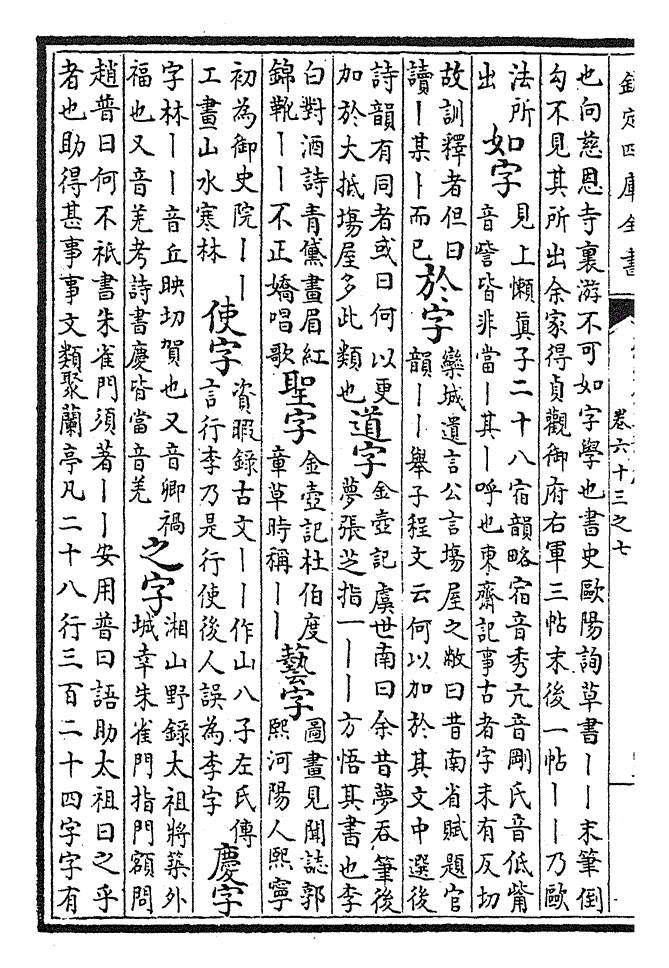 欽定四庫全書
卷六十三之七
也向慈恩寺裏游不可如字學也書史歐陽詢草書丨丨末筆倒
勾不見其所出余家得貞觀御府右軍三帖末後一帖丨丨乃歐
法所
出
如字
見上懶真子二十八宿韻略宿音秀亢音剛氐音低觜
音訾皆非當丨其丨呼也東齋記事古者字未有反切
故訓釋者但曰
讀丨某丨而已
於字
欒城遺言公言塲屋之敝曰昔南省賦題官
韻丨丨舉子程文云何以加於其文中選後
詩韻有同者或曰何以更
加於大抵塲屋多此類也
道字
金壺記虞世南曰余昔夢吞筆後
夢張芝指一丨丨方悟其書也李
白對酒詩青黛畫眉紅
錦靴丨丨不正嬌唱歌
聖字
金壺記杜伯度
章草時稱丨丨
藝字
圖畫見聞誌郭
熙河陽人熙寧
初為御史院丨丨
工畫山水寒林
使字
資暇録古文丨丨作山八子左氏傳
言行李乃是行使後人誤為李字
慶字
字林丨丨音丘映切賀也又音卿禍
福也又音羌考詩書慶皆當音羌
之字
湘山野録太祖將築外
城幸朱雀門指門額問
趙普曰何不祇書朱雀門須著丨丨安用普曰語助太祖曰之乎
者也助得甚事事文類聚蘭亭凡二十八行三百二十四字字有